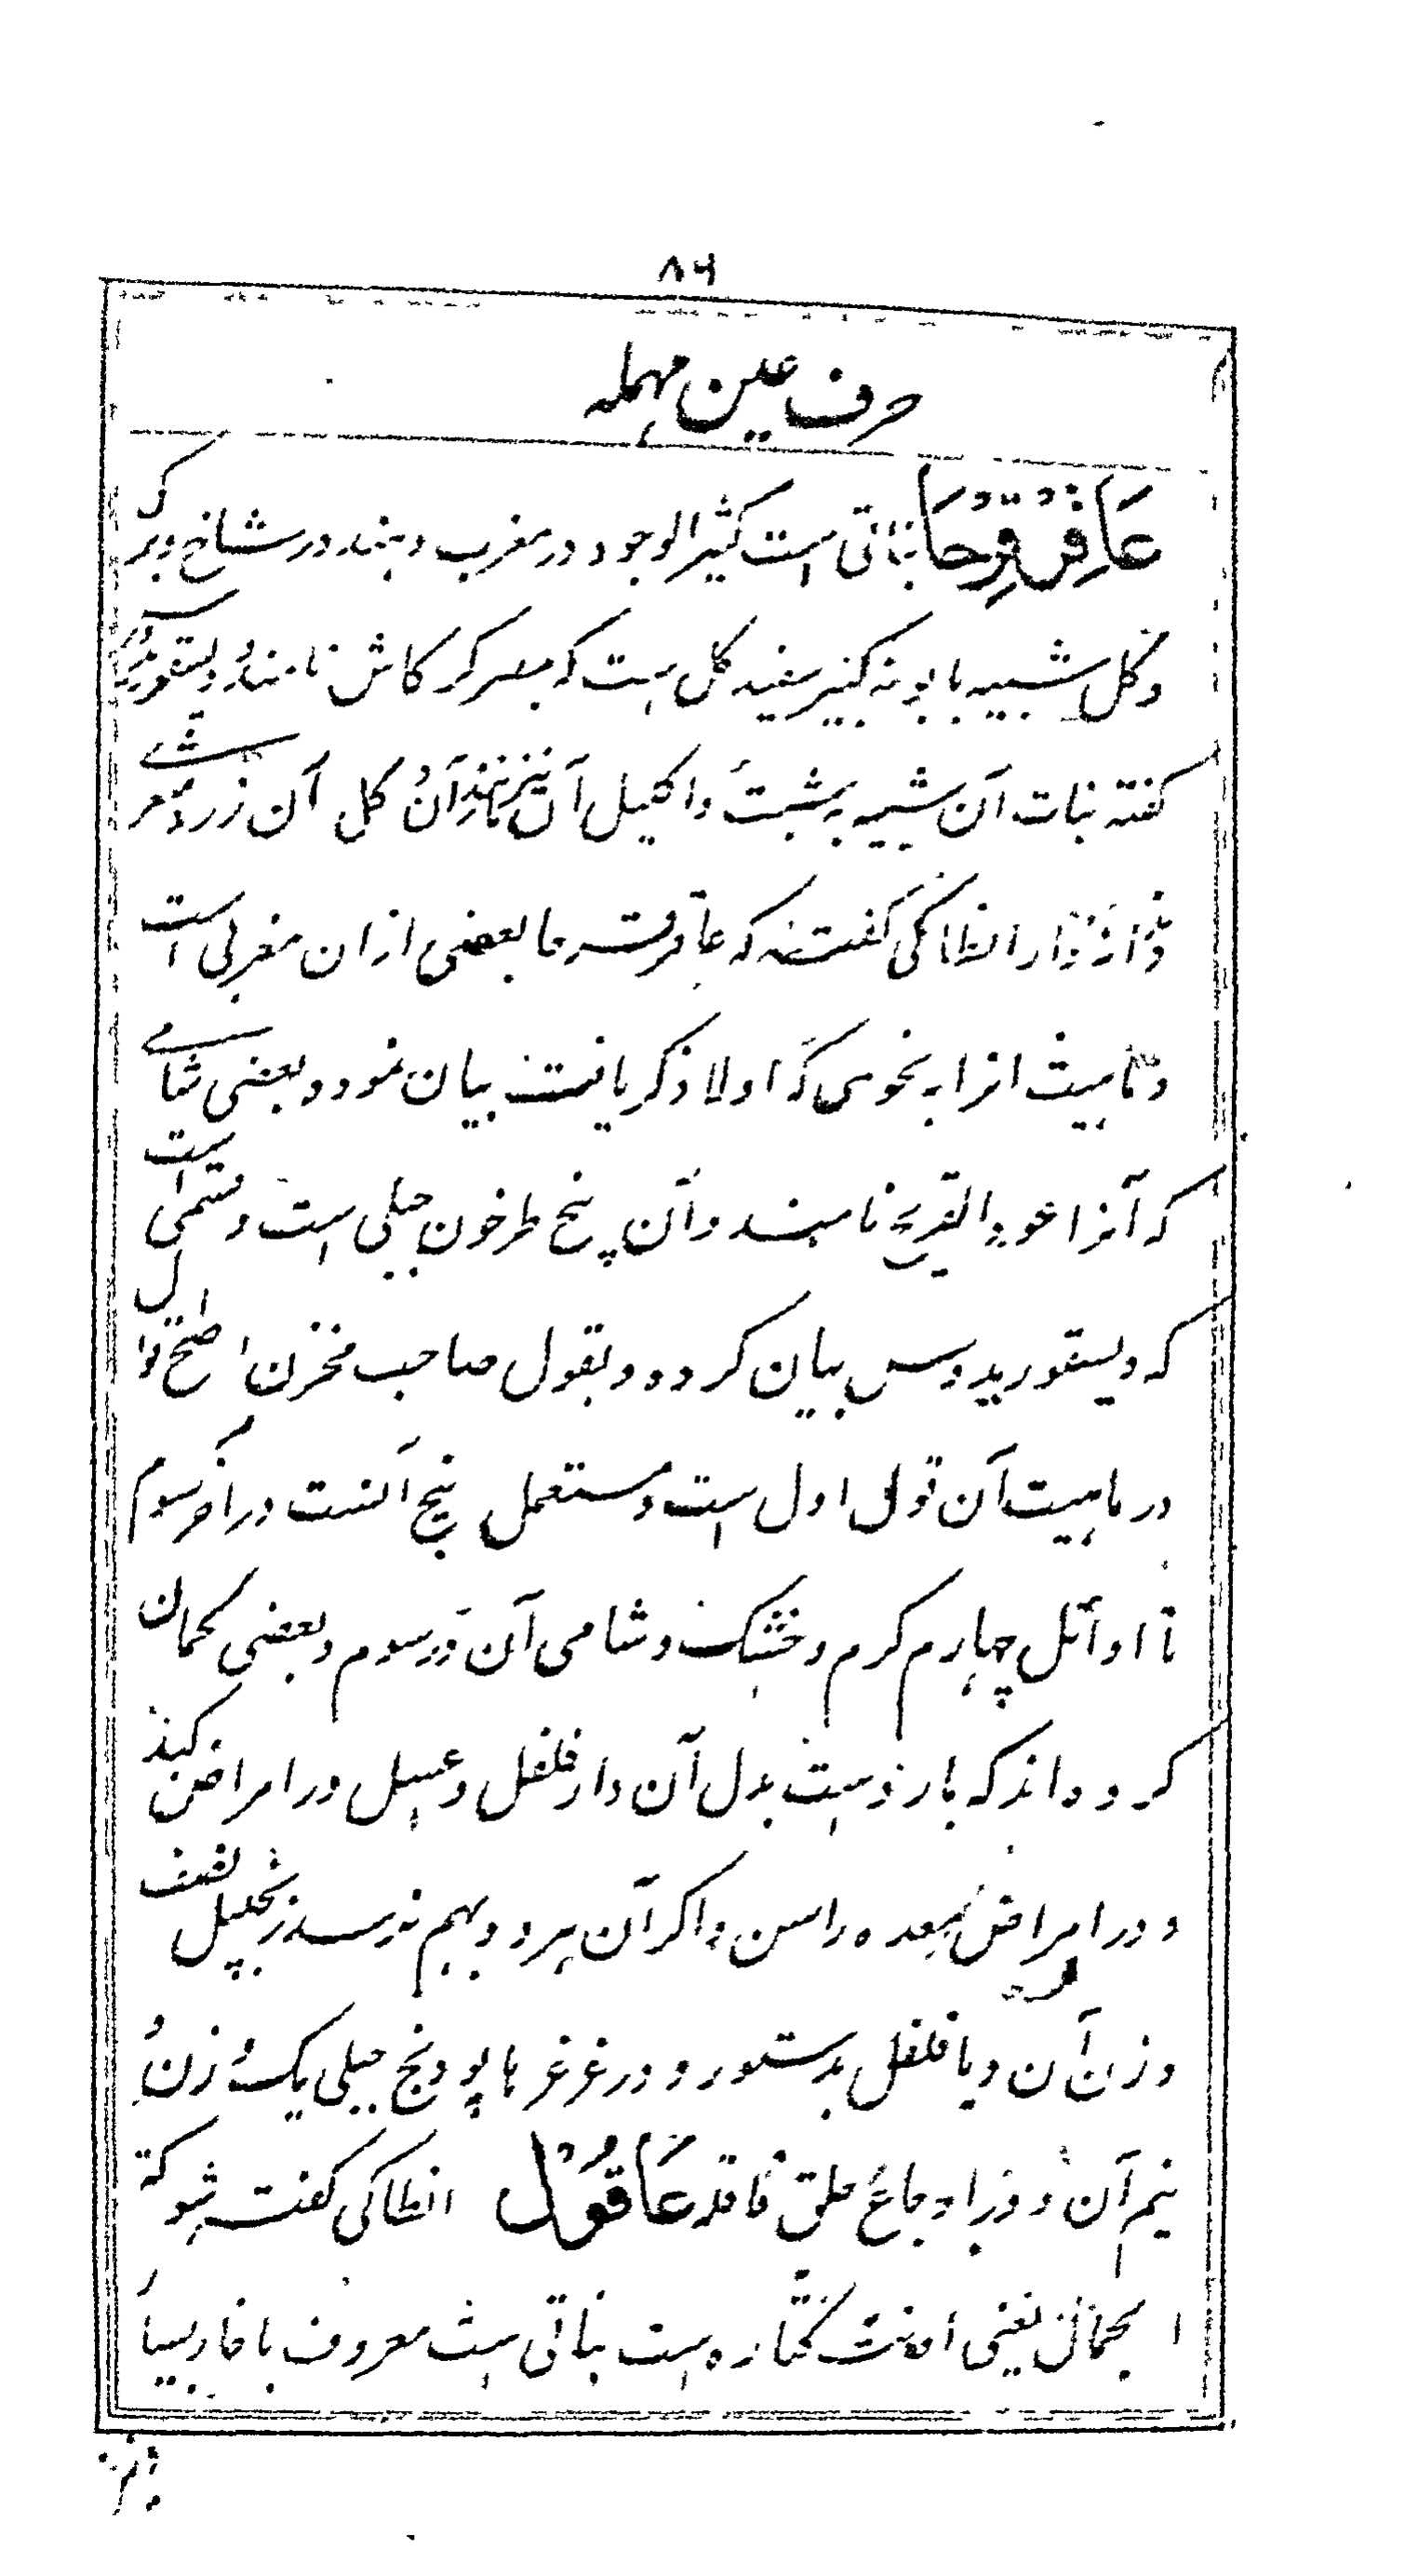 ۸۶
حرف عین مهمله
عَاقِرْقَرْحَا نباتی است کثیر الوجود در مغرب و هند در شاخ و برگ
و گل شبیه بابونه کبیر سفید گل است که بمصر کرکاش نامند و دیسقوریدوس
گفته نبات آن شبیه به شبت و اکلیل آن نیز مانند آن و گل آن زرد مسمی
داود انطاکی گفته که عاقرقرحا بعضی از ان مغربی است
و ماهیت انرا به نحوی که اولا ذکر یافت بیان نمود و بعضی شامی
که آنرا عود القرح نامیند و آن پنخ طرخون جبلی است و قسمی است
که دیسقوریدوس بیان کرده و بقول صاحب مخزن اصح اقوال
در ماهیت آن قول اول است و مستعمل بیخ آنست در آخر سوم
تا اوائل چهارم گرم و خشک و شامی آن در سوم و بعضی گمان
کرده اند که بارد است بدل آن دارفلفل و عسل در امراض کبد
و در امراض معده راسن و اگر آن هر دو بهم نرسد زنجبیل نصف
وزن آن و یا فلفل بدستور و در غرغره با پودنج جبلی یک و زن و
نیم آن و در اوجاع حلق قاقله عَاقُول انطاکی گفت شوکة
الجمال یعنی اشتر است نباتی است معروف با خار بسیار